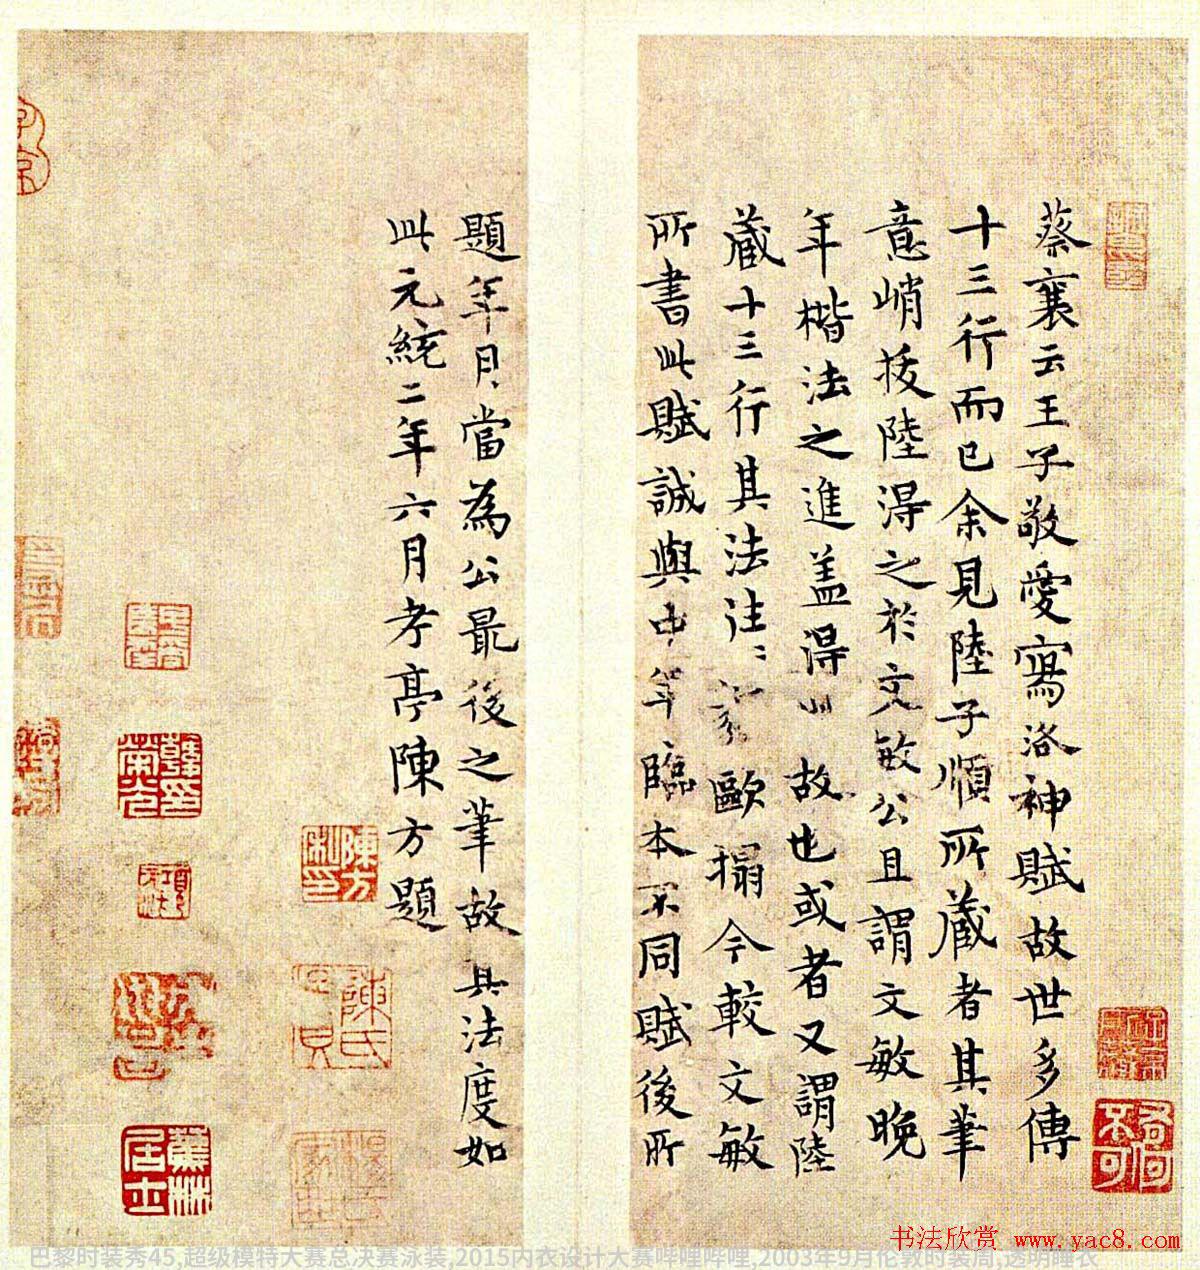 蔡襄云王子敬愛寫洛神賦故世多傳
十三行而已余見陸子順所藏者其筆
意峭拔陸得之於文敏公且謂文敏晚
年楷法之進盖得此故也或者又謂陸
藏十三行其法往〻
歐搨今較文敏
所書此賦誠與中年臨本不同賦後所
題年月當為公最後之筆故其法度如
此元統二年六月孝亭陳方題
陳方私印
陳氏
蕉林居士
书法欣赏 www.yac8.com
巴黎时装秀45,超级模特大赛总决赛泳装,2015内衣设计大赛哔哩哔哩,2003年9月伦敦时装周,透明睡衣